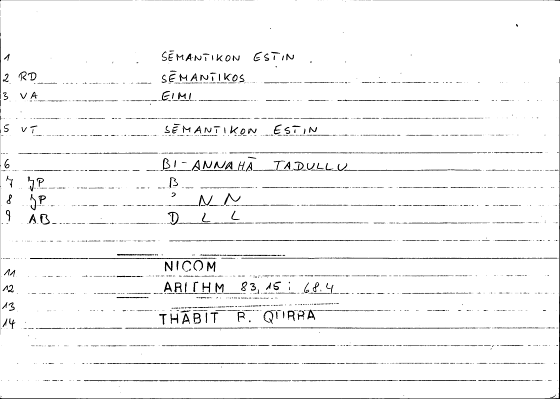 1 SĒMANTIKON ESTIN
2 RD SĒMANTIKOS
3 VA EIMI
5 VT SĒMANTIKON ESTIN
6 BI-ANNAHĀ TADULLU
7 JP B
8 JP ʾ N N
9 AB D L L
11 NICOM
12 ARITHM 83,15 : 68.4
13
14 THĀBIT B. QURRA